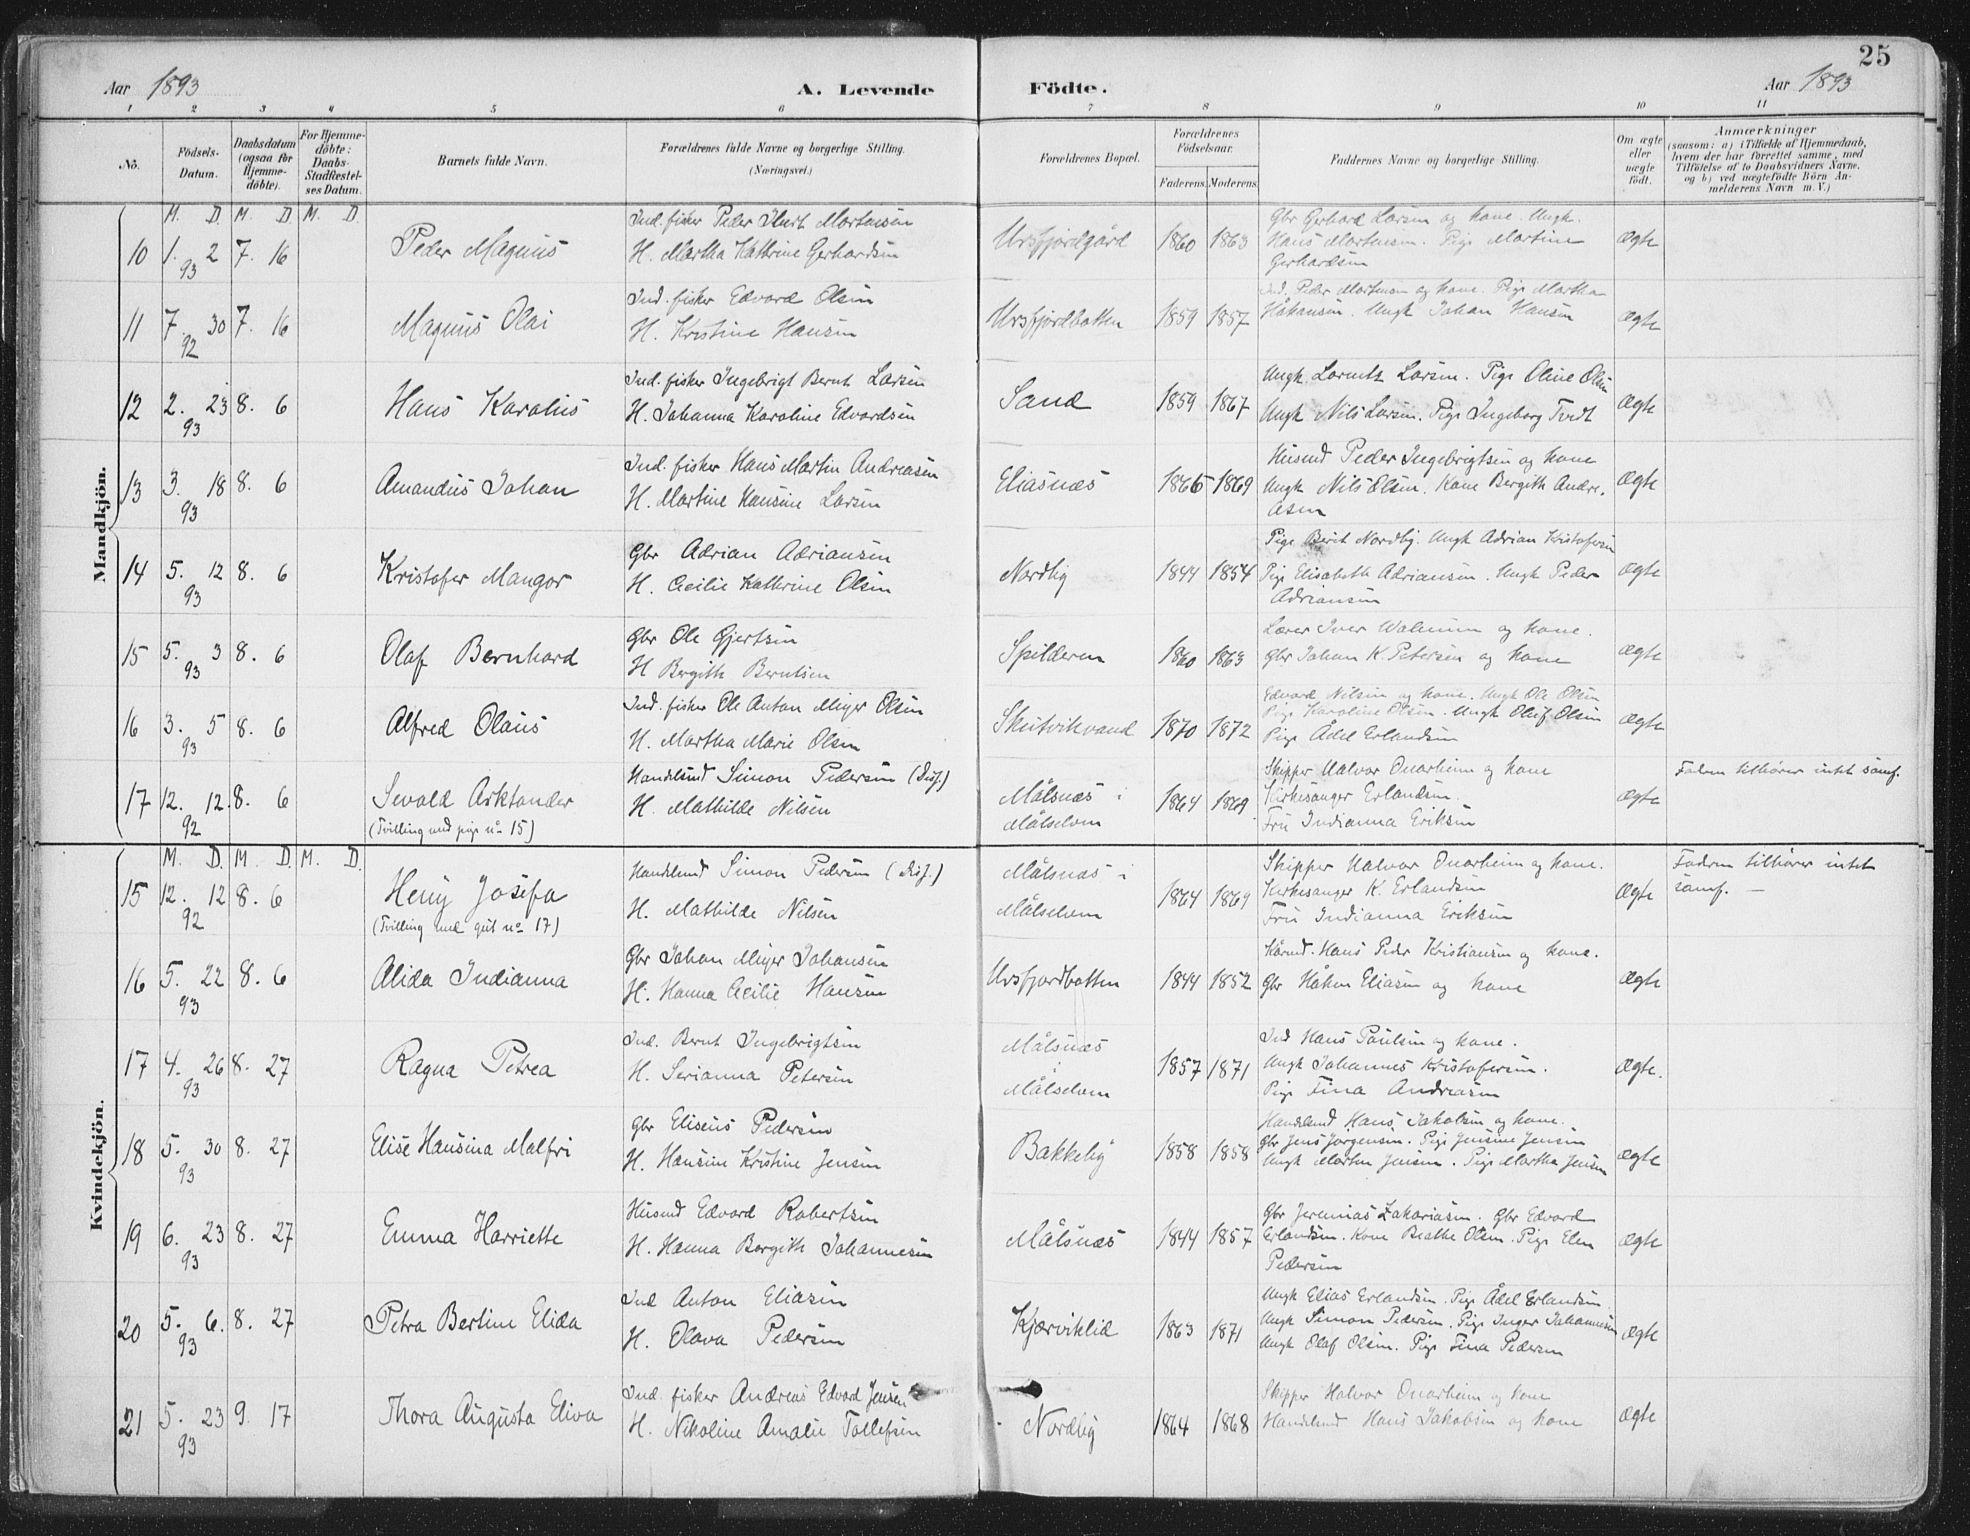 25
Aar 1893 A. Levende Födte. Aar 1893
1 2 3 4 5 6 7 8 9 10 11
No.
Födsels-Datum.
Daabsdatum (ogsaa for Hjemme-döbte).
For Hjemme-döbte: Daabs-Stadfæstel-ses Datum.
Barnets fulde Navn.
Forældrenes fulde Navne og borgerlige Stilling.
(Næringsvei.)
Forældrenes Bopæl.
Forældrenes Födselsaar.
Faderens. Moderens.
Faddernes Navne og borgerlige Stilling.
Om ægte eller uægte födt.
Anmærkninger
(saasom: a) i Tilfælde af Hjemmedaab,
hvem der har forrettet samme, med
Tilföielse af to Daabsvidners Navne.
og b) ved uægtefödte Börn An-
melderens Navn m. V.)
Mandkjön.
M. D. M. D. M. D.
10 1. 2 93 7. 16 Peder Magnus
Ind. fisker Peder Kurt Mortensen
H. Martha Kathrine Gerhardsen
Ursfjordgård 1860 1863
Gbr Gerhard Larsen og kone. Ungk.
Hans Mortensen. Pige Martine
Gerhardsen
Ægte
11 7. 30 92 7. 16 Magnus Olai
Ind. fisker Edvard Olsen
H. Kristine Hansen
Ursfjordbotten 1859 1857
Ind. Peder Mortensen og kone. Pige Martha
Håkansen. Ungk Johan Hansen
Ægte
12 2. 23 93 8. 6 Hans Karolius
Ind. fisker Ingebrigt Bernt Larsen
H. Johanna Karoline Edvardsen
Sand 1859 1867
Ungk. Lorentz Larsen. Pige Oline Olsen
Ungk Nils Larsen. Pige Ingeborg Tvedt
Ægte
13 3. 18 93 8. 6 Amandus Johan
Ind. fisker Hans Martin Andreasen
H. Martine Hansine Larsen
Eliasnæs 1865 1869
Husmd Peder Ingebrigtsen og kone
Ungk Nils Olsen. Kone Bergith Andre-
asen
Ægte
14 5. 12 93 8. 6 Kristofer Mangor
Gbr Adrian Adriansen
H. Cecilie Kathrine Olsen
Nordlig 1844 1854
Pige Berit Nordby. Ungk Adrian Kristofersen
Pige Elisabeth Adriansen. Ungk Peder
Adriansen
Ægte
15 5. 3 93 8. 6 Olaf Bernhard
Gbr Ole Gjertsen
H Bergith Berntsen
Spilderen 1860 1863
Lærer Iver Walnum og kone.
Gbr Johan K. Petersen og kone
Ægte
16 3. 5 93 8. 6 Alfred Olaus
Ind. fisker Ole Anton Meyer Olsen
H. Martha Marie Olsen
Skutvikvand 1870 1872
Edvard Nilsen og kone. Ungk Ole Olsen
Pige Karoline Olsen. Ungk Oluf Olsen
Pige Ådel Erlandsen
Ægte
17 12. 12. 92 8. 6 Sevald Arktander
(Tvilling med pige no 15)
Handelsmd Simon Pedersen (Diss.)
H. Mathilde Nilsen
Målsnæs i
Målselven
1864 1869.
Skipper Halvor Onarheim og kone
Kirkesanger Erlandsen.
Fru Indianna Eriksen
Ægte
Faderen tilhører intet samf.
Kvindekjön.
M. D. M. D. M. D.
15 12. 12 92 8. 6 Heny Josefa
(Tvilling med gut no 17)
Handelsmd Simon Pedersen (Diss.)
H. Mathilde Nilsen
Målsnæs i
Målselven
1864 1869
Skipper Halvor Onarheim og kone.
Kirkesanger K. Erlandsen
Fru Indianna Eriksen
Ægte
Faderen tilhører intet
samf. —
16 5. 22 93 8. 6 Alida Indianna
Gbr Johan Meyer Johansen
H. Hanna Cecilie Hansen
Ursfjordbotten 1844 1852
Kårmd. Hans Peder Kristiansen og kone.
Gbr Håken Eliasen og kone
Ægte
17 4. 26 93 8. 27 Ragna Petrea
Ind. Bernt Ingebrigtsen
H. Serianna Petersen
Målsnæs
i
Målselven
1857 1871
Ind Hans Paulsen og kone.
Ungk Johannes Kristofersen.
Pige Tina Andreasen
Ægte.
18 5. 30 93 8. 27 Elise Hansina Malfri
Gbr Eliseus Pedersen
H. Hansine Kristine Jensen
Bakkeby 1858 1858
Handelsmd Hans Jakobsen og kone.
Gbr Jens Jørgensen. Pige Jensine Jensen
Ungk Morten Jensen. Pige Martha Jensen
Ægte
19 6. 23 93 8. 27 Emma Harriette
Husmd Edvard Robertsen
H. Hanna Bergith Johannesen
Målsnæs 1844 1857
Gbr Jeremias Zakariasen. Gbr Edvard
Erlandsen. Kone Beathe Olsen. Pige Elen
Pedersen
Ægte
20 5. 6. 93 8. 27 Petra Bertine Elida
Ind Anton Eliasen
H. Olava Pedersen
Kjærviklid 1863 1871
Ungk Elias Erlandsen. Pige Ådel Erlandsen.
Ungk Simon Pedersen. Pige Inger Johannesen
Ungk Olaf Olsen. Pige Tina Pedersen
Ægte
21 5. 23 93 9. 17 Thora Augusta Eliva
Ind. fisker Andreas Edvard Jensen
H. Nikoline Amalie Tollefsen
Nordby 1864 1868
Skipper Halvor Onarheim og kone
Handelsmd Hans Jakobsen og kone
Ægte